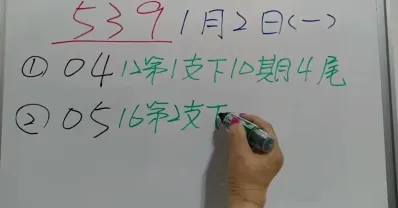 539 1月2日(一)
① 04 12第1支下10期4尾
② 05 16第2支下